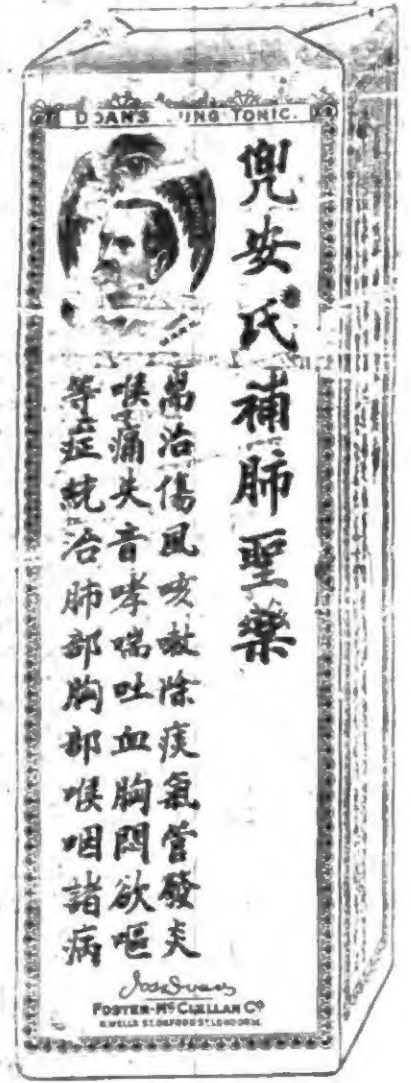 DOAN'S LUNG TONIC.
兜安氏補肺聖藥
耑治傷風咳嗽除痰氣管發炎
喉痛失音哮喘吐血胸悶欲嘔
等症統治肺部胸部喉咽諸病
FOSTER-McCLELLAN Co
8 WELLS ST. OXFORD ST. LONDON W.